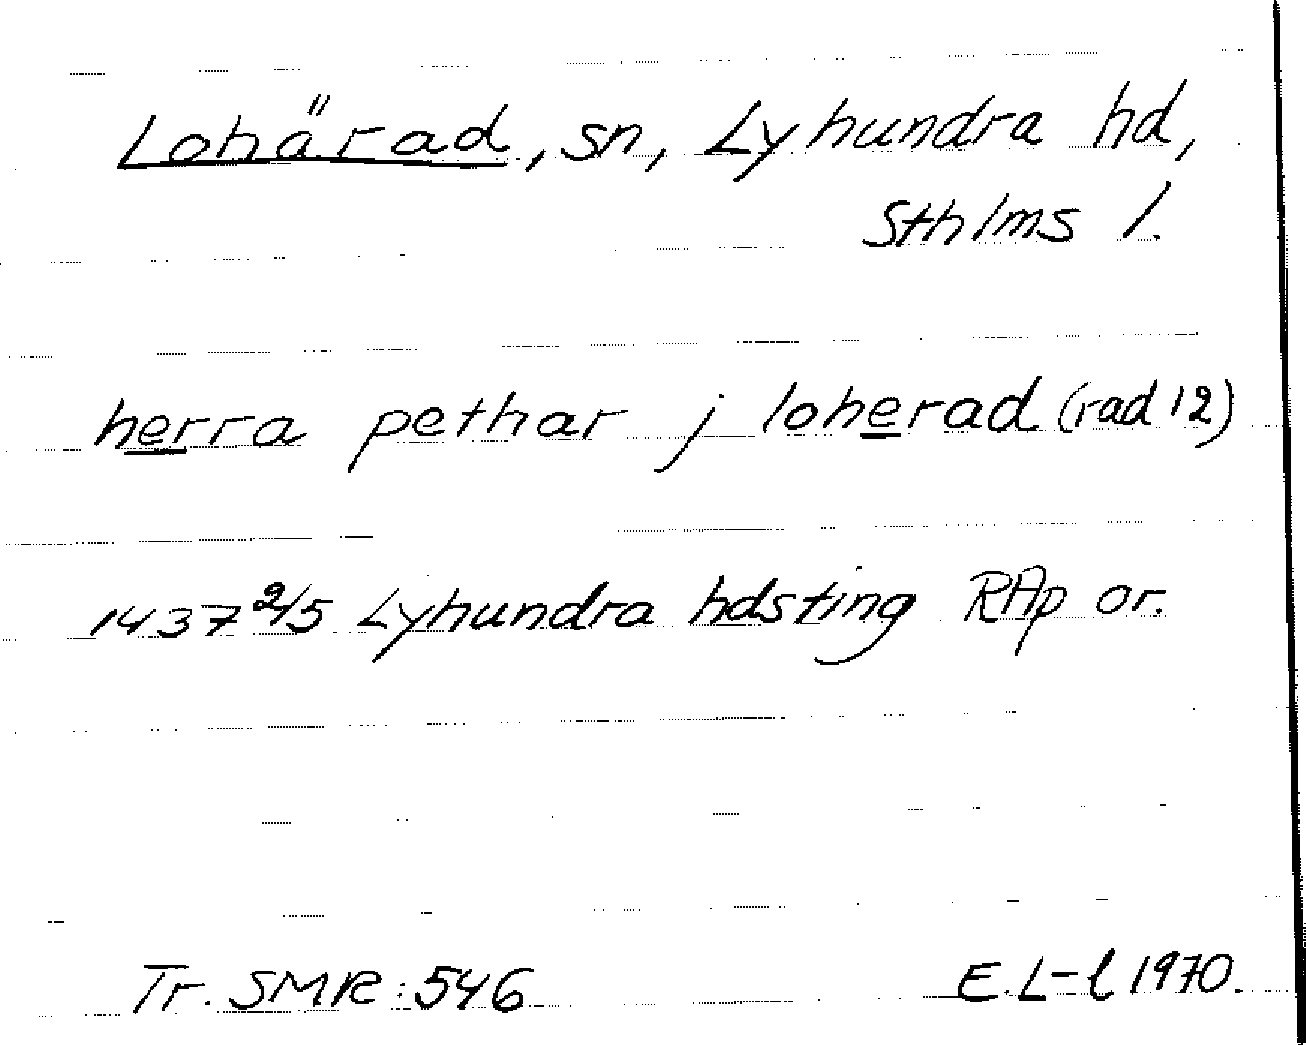 Lohärad, sn, Lyhundra hd,
Sthlms l.
herra pethar j loherad (rad 12)
1437 2/5 Lyhundra hdsting RAp or.
Tr. SMR: 546
E.L-l 1970.